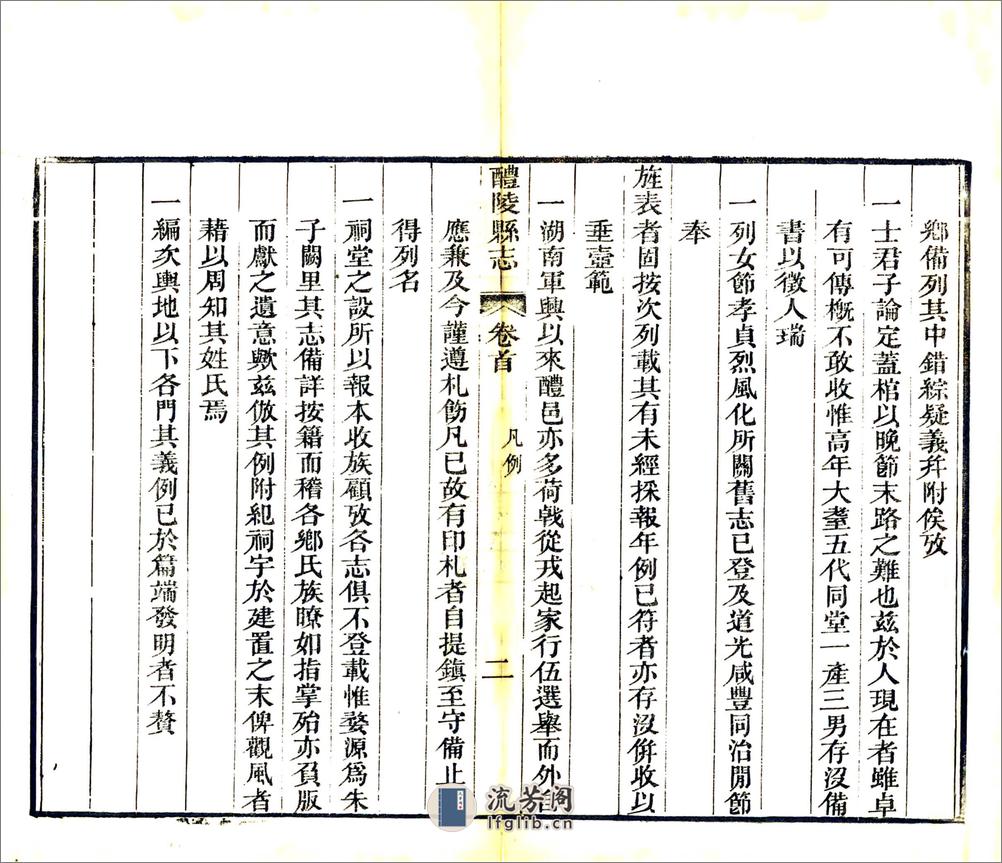 鄉備列其中錯綜疑義幷附俟攷
一士君子論定蓋棺以晚節末路之難也兹於人現在者雖卓
有可傳槪不敢收惟高年大耋五代同堂一產三男存沒備
書以徵人瑞
一列女節孝貞烈風化所關舊志已登及道光咸豐同治閒節
奉
旌表者固按次列載其有未經採報年例已符者亦存沒倂收以
垂壼範
一湖南軍興以來醴邑亦多荷戟從戎起家行伍選舉而外
醴陵縣志 卷首 凡例 二
應兼及今謹遵札飭凡已故有印札者自提鎮至守備止
得列名
一祠堂之設所以報本收族顧攷各志俱不登載惟婺源爲朱
子闕里其志備詳按籍而稽各鄉氏族瞭如指掌殆亦負版
而獻之遺意歟兹倣其例附紀祠宇於建置之末俾觀風者
藉以周知其姓氏焉
一編次輿地以下各門其義例已於篇端發明者不贅
流芳阁
lfglib.cn